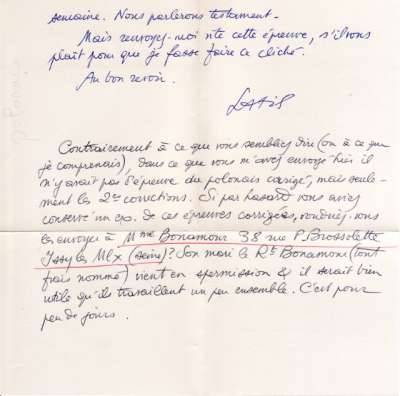 semaine. Nous parlerons testament.
Mais renvoyez-moi vite cette épreuve, s'il vous
plaît pour que je fasse faire ce cliché.
Au bon revoir.
Latis
Contrairement à ce que vous semblez dire (ou à ce que
je comprenais), dans ce que vous m'avez envoyé hier il
n'y avait pas d'épreuve du polonais corrigé, mais seule-
ment les 2es corrections. Si par hasard vous aviez
conservé un ex. de ces épreuves corrigées, voudriez-vous
les envoyer à Mme Bonamour 38 rue P. Brossolette
Issy les Mlx (Seine)? Son mari le Rt Bonamour (tout
frais nommé) vient en permission & il serait bien
utile qu'ils travaillent un peu ensemble. C'est pour
peu de jours.